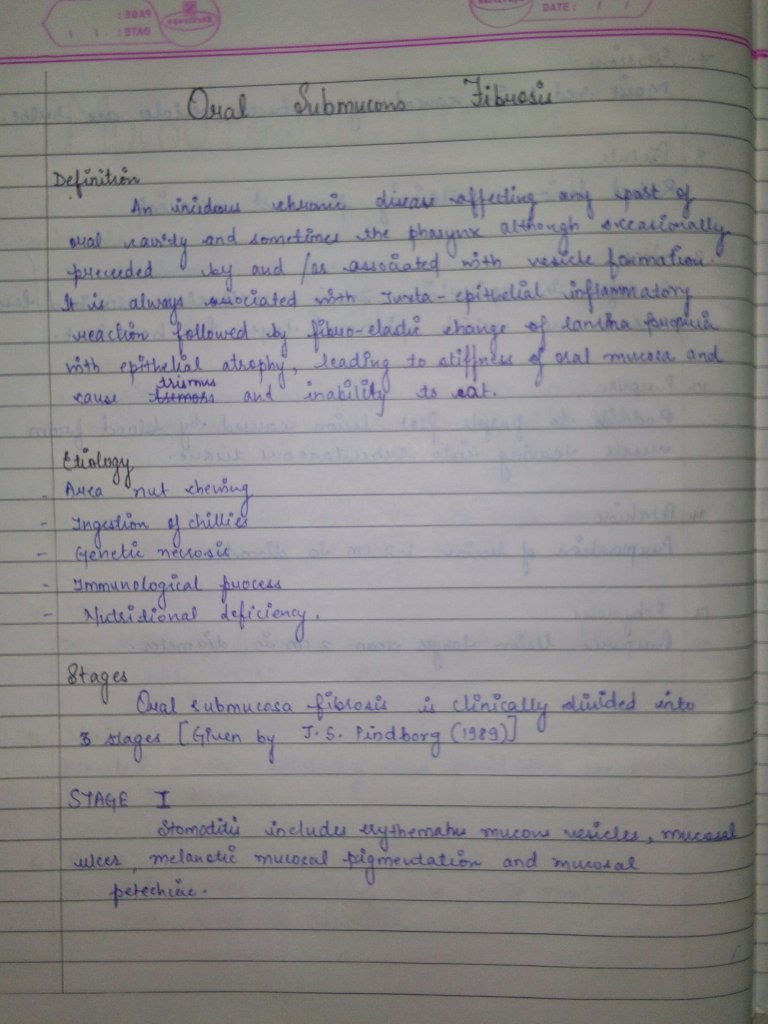 PAGE:
DATE: / /
DATE: / /
Oral Submucous Fibrosis
Definition
An insidous chronic disease affecting any part of
oral cavity and sometimes the pharynx although occasionally
preceeded by and /or associated with vesicle formation.
It is always associated with Juxta-epithelial inflammatory
reaction followed by fibro-elastic change of lamina propria
with epithelial atrophy, leading to stiffness of oral mucosa and
cause trismus and inability to eat.
Etiology
- Area nut chewing
- Ingestion of chillies
- Genetic necrosis
- Immunological process
- Nutritional deficiency.
Stages
Oral submucosa fibrosis is clinically divided into
3 stages [Given by J.S. Pindborg (1989)]
STAGE I
Stomatitis includes erythematus mucous vesicles, mucosal
ulcer, melanotic mucosal pigmentation and mucosal
petechiae.